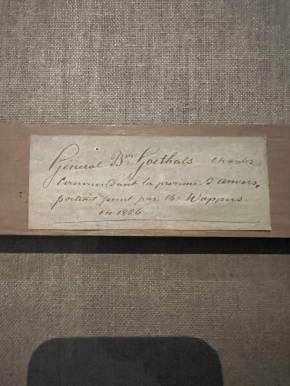 Général Bon Goethals Charles
Commandant la province d'anvers,
portrait peint par Bon Wappers
en 1826